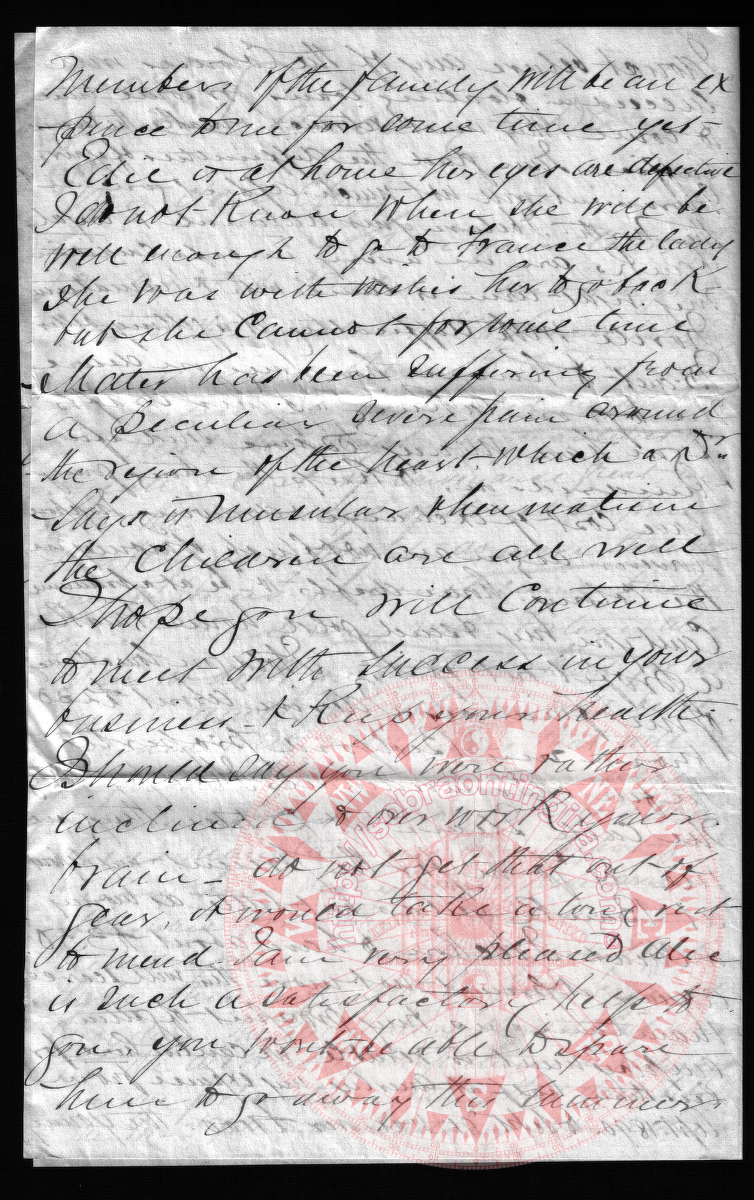 Members of the family will be an ex
-pence to me for some time yet-
Edie is at home her eyes are defective
I do not know when she will be
well enough to go to France the lady
she was with wishes her to go back
but she cannot for some time
Mater has been suffering from
a peculiar severe pain around
the region of the heart which a Dr.
says is muscular rheumatism
the children are all well
I hope you will continue
to meet with success in your
business & keep your health.
I should say you were rather
inclined to over work your
brain - do not get that out of
gear, it would take a long rest
to mend I am very pleased Alec
is such a satisfactory help to
you. you wont be able to spare
him to go away this summer
http://sabraontinatie.com